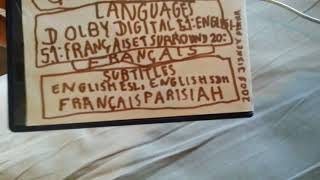 LANGUAGES
DOLBY DIGITAL 5.1: ENGLISH
5.1: FRANÇAISE? SURROUND 2.0:
FRANÇAIS
SUBTITLES
ENGLISH ESL, ENGLISH SDH
FRANÇAIS PARISIAH
2003 DISNEY PIXAR